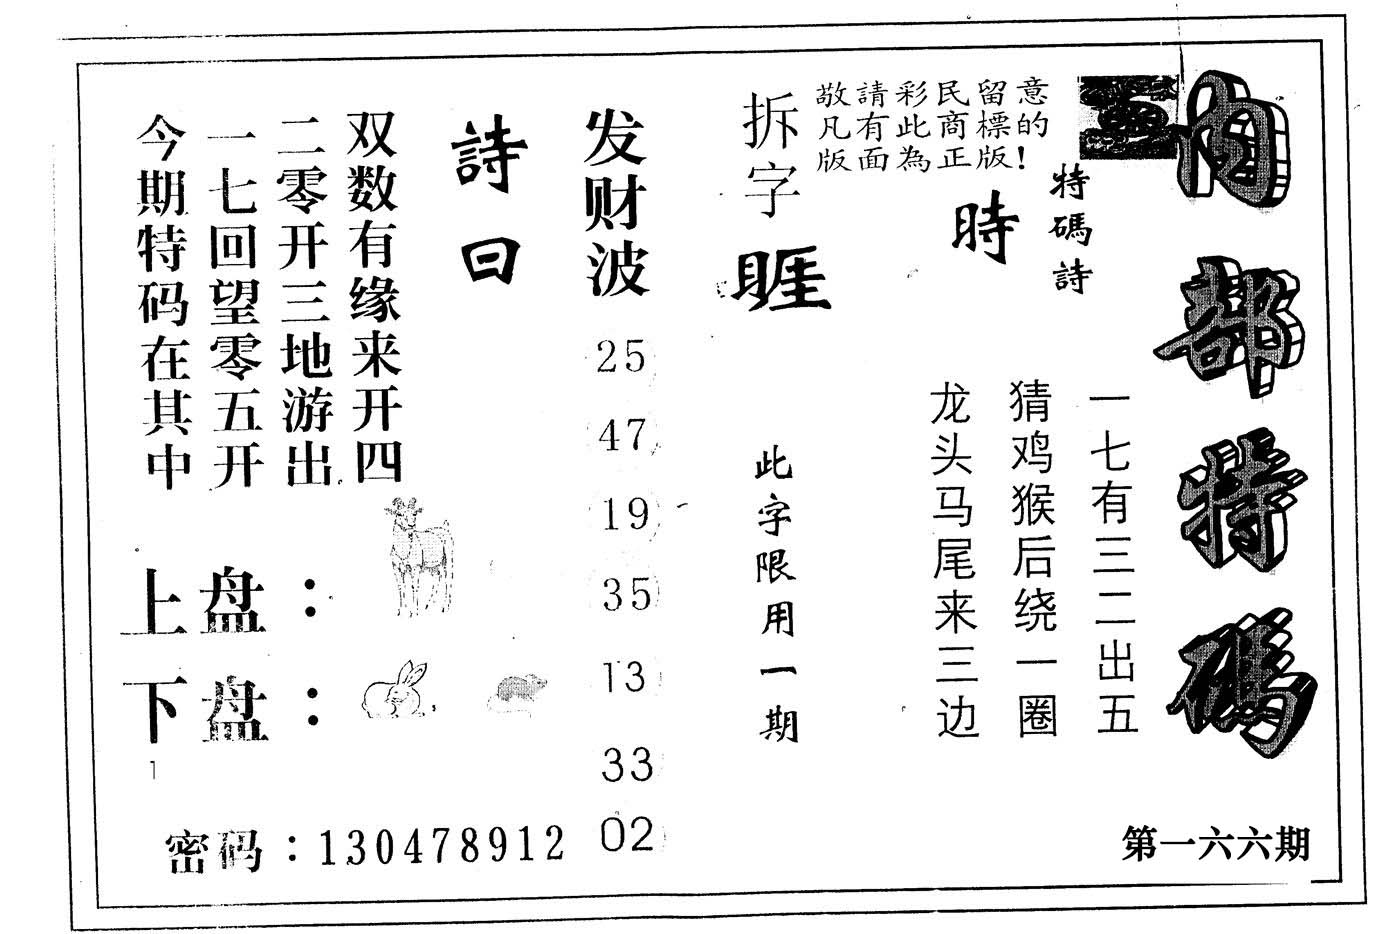 内部特碼
第一六六期
敬請彩民留意
凡有此商標的
版面為正版!
特碼詩
時
一七有三二出五
猜鸡猴后绕一圈
龙头马尾来三边
拆字
此字限用一期
发财波
25
47
19
35
13
33
02
詩曰
双数有缘来开四
二零开三地游出
一七回望零五开
今期特码在其中
上盘：
下盘：
密码：130478912